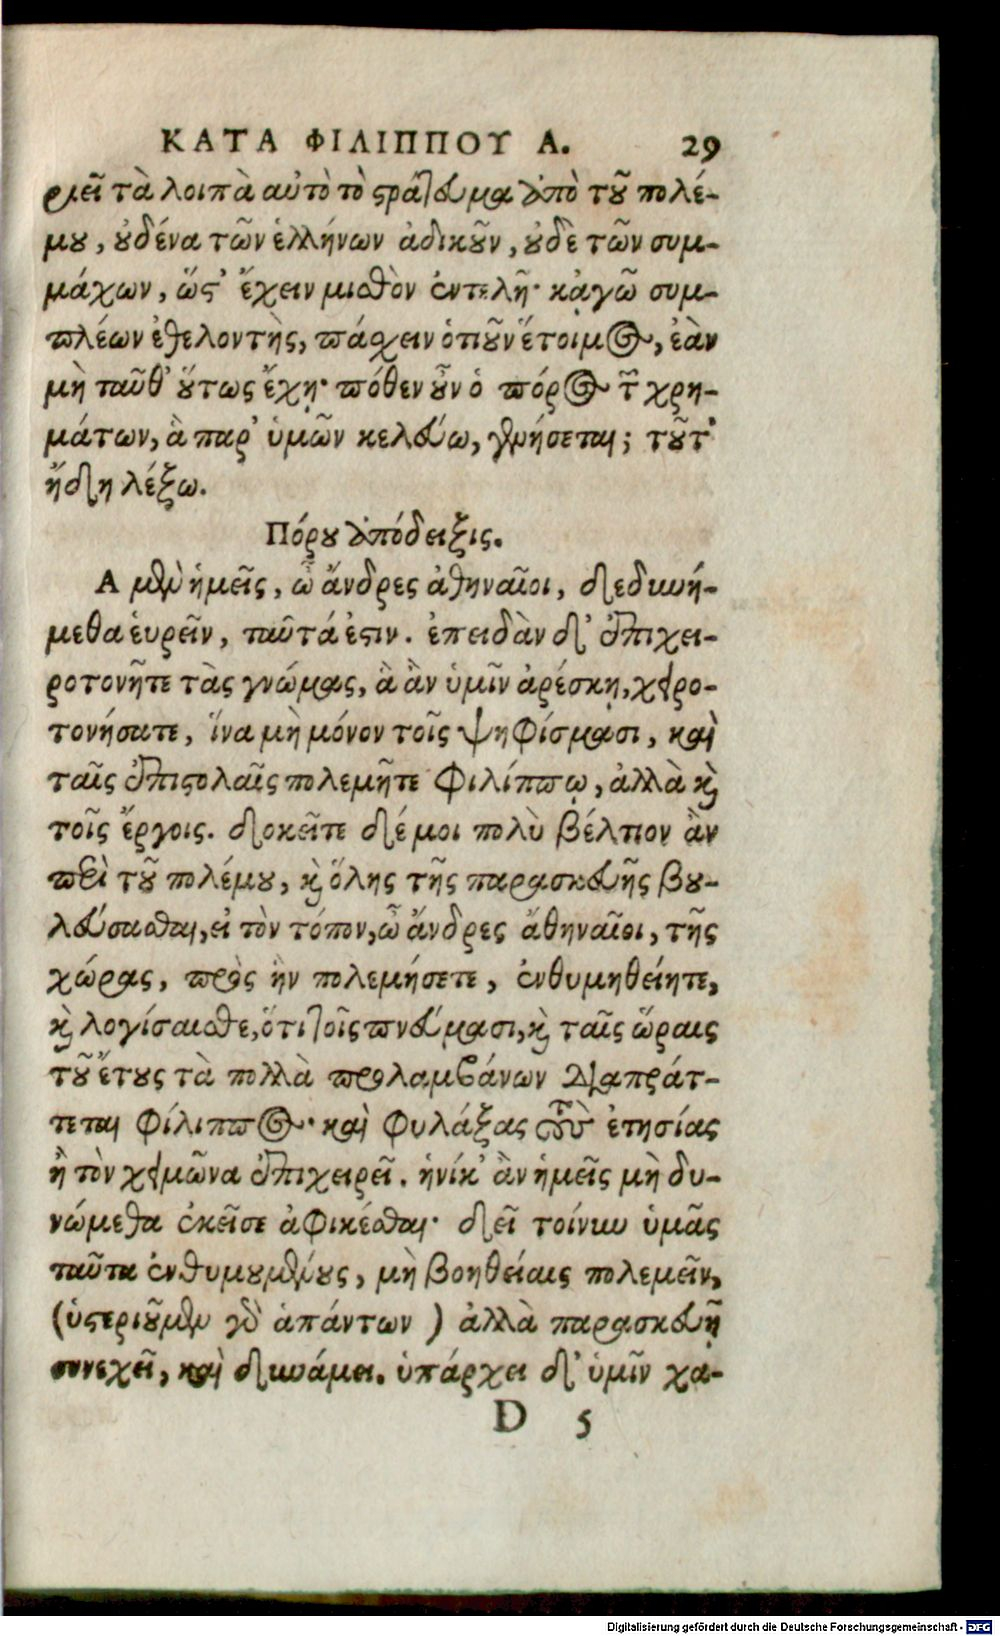 ΚΑΤΑ ΦΙΛΙΠΠΟΥ Α. 29
ριεῖ τὰ λοιπὰ αὐτὸ τὸ στράτευμα ἀπὸ τοῦ πολέ-
μου, οὐδένα τῶν ἑλλήνων ἀδικοῦν, οὐδὲ τῶν συμ-
μάχων, ὥστ' ἔχειν μισθὸν ἐντελῆ· κἀγὼ συμ-
πλέων ἐθελοντὴς, πάσχειν ὁτιοῦν ἕτοιμος, ἐὰν
μὴ ταῦθ' οὕτως ἔχῃ· πόθεν οὖν ὁ πόρος τῶν χρη-
μάτων, ἃ παρ' ὑμῶν κελεύω, γενήσεται; τοῦτ'
ἤδη λέξω.
Πόρου ἀπόδειξις.
Α μὲν ἡμεῖς, ὦ ἄνδρες ἀθηναῖοι, δεδυνή-
μεθα εὑρεῖν, ταῦτά ἐστιν. ἐπειδὰν δ' ἐπιχει-
ροτονῆτε τὰς γνώμας, ἃ ἂν ὑμῖν ἀρέσκῃ, χειρο-
τονήσατε, ἵνα μὴ μόνον τοῖς ψηφίσμασι, καὶ
ταῖς ἐπιστολαῖς πολεμῆτε Φιλίππῳ, ἀλλὰ καὶ
τοῖς ἔργοις. δοκεῖτε δέ μοι πολὺ βέλτιον ἂν
περὶ τοῦ πολέμου, καὶ ὅλης τῆς παρασκευῆς βου-
λεύσασθαι, εἰ τὸν τόπον, ὦ ἄνδρες ἀθηναῖοι, τῆς
χώρας, πρὸς ἣν πολεμήσετε, ἐνθυμηθείητε,
καὶ λογίσαισθε, ὅτι τοῖς πνεύμασι, καὶ ταῖς ὥραις
τοῦ ἔτους τὰ πολλὰ προλαμβάνων διαπράτ-
τεται Φίλιππος· καὶ Φυλάξας τοὺς ἐτησίας
ἢ τὸν χειμῶνα ἐπιχειρεῖ. ἡνίκ' ἂν ἡμεῖς μὴ δυ-
νώμεθα ἐκεῖσε ἀφικέσθαι· δεῖ τοίνυν ὑμᾶς
ταῦτα ἐνθυμουμένους, μὴ βοηθείαις πολεμεῖν,
(ὑστεριοῦμεν γὰρ ἁπάντων) ἀλλὰ παρασκευῇ
συνεχεῖ, καὶ δυνάμει. ὑπάρχει δ' ὑμῖν χα-
D 5
Digitalisierung gefördert durch die Deutsche Forschungsgemeinschaft - DFG